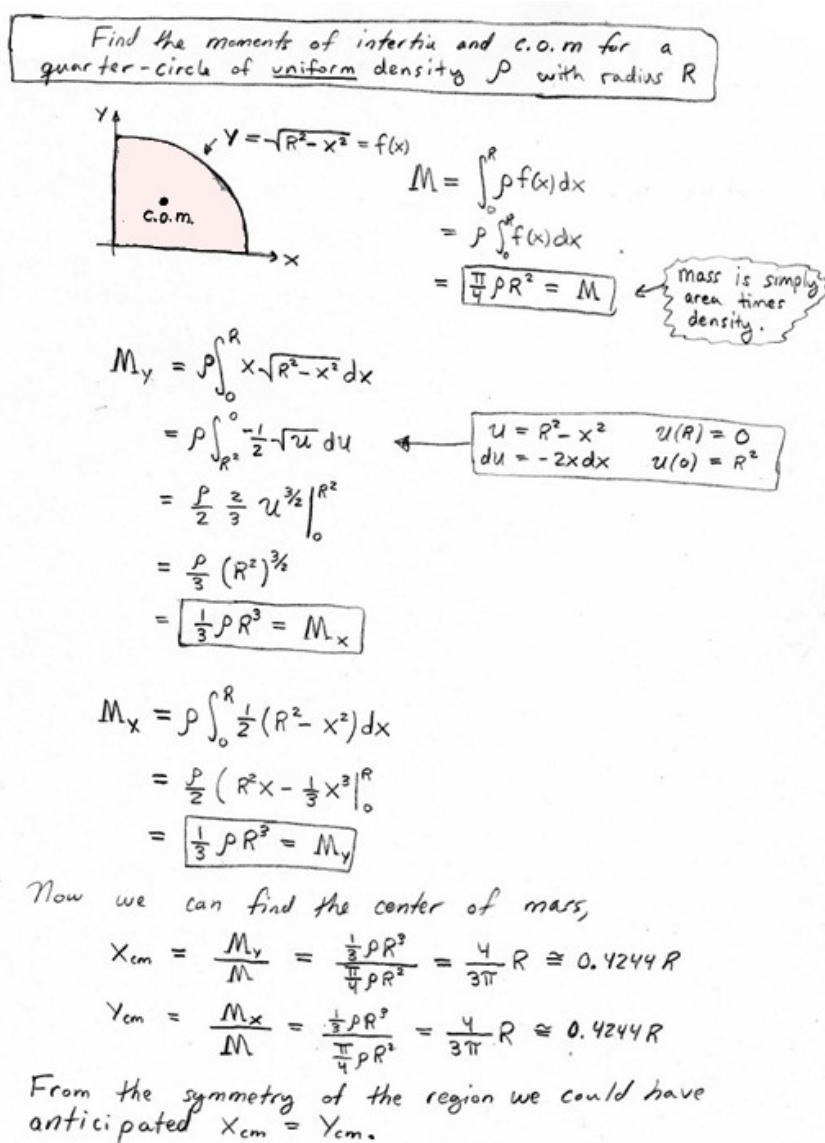 Find the moments of intertia and c.o.m for a
quarter-circle of uniform density ρ with radius R
Y
Y = √(R² - x²) = f(x)
c.o.m.
x
M = ∫₀ᴿ ρ f(x) dx
= ρ ∫₀ᴿ f(x) dx
= π/4 ρR² = M
mass is simply
area times
density.
M_Y = ρ ∫₀ᴿ x √(R² - x²) dx
= ρ ∫_{R²}^0 -1/2 √u du
u = R² - x² u(R) = 0
du = -2x dx u(0) = R²
= ρ/2 2/3 u^{3/2} |₀^{R²}
= ρ/3 (R²)^{3/2}
= 1/3 ρR³ = M_x
M_X = ρ ∫₀ᴿ 1/2 (R² - x²) dx
= ρ/2 (R²x - 1/3 x³ |₀ᴿ
= 1/3 ρR³ = M_y
Now we can find the center of mass,
X_cm = M_y/M = (1/3 ρR³)/(π/4 ρR²) = 4/(3π) R ≅ 0.4244 R
Y_cm = M_x/M = (1/3 ρR³)/(π/4 ρR²) = 4/(3π) R ≅ 0.4244 R
From the symmetry of the region we could have
anticipated X_cm = Y_cm.